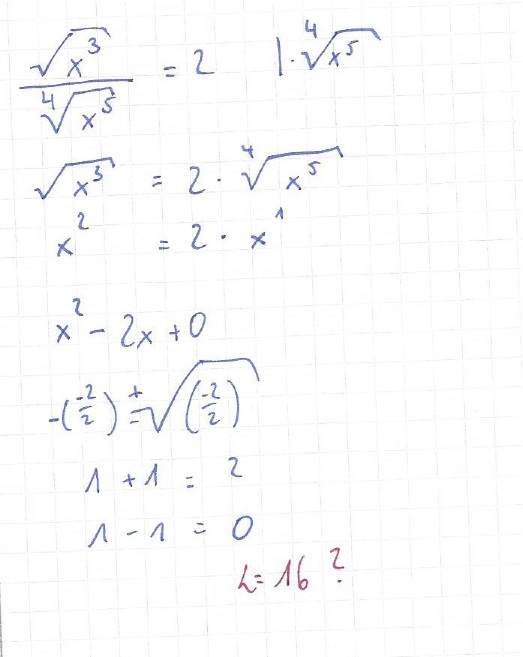 √x³ / ⁴√x⁵ = 2 | · ⁴√x⁵
√x³ = 2 · ⁴√x⁵
x² = 2 · x¹
x² - 2x + 0
-(-2/2) ± √(-2/2)
1 + 1 = 2
1 - 1 = 0
L = 16 ?